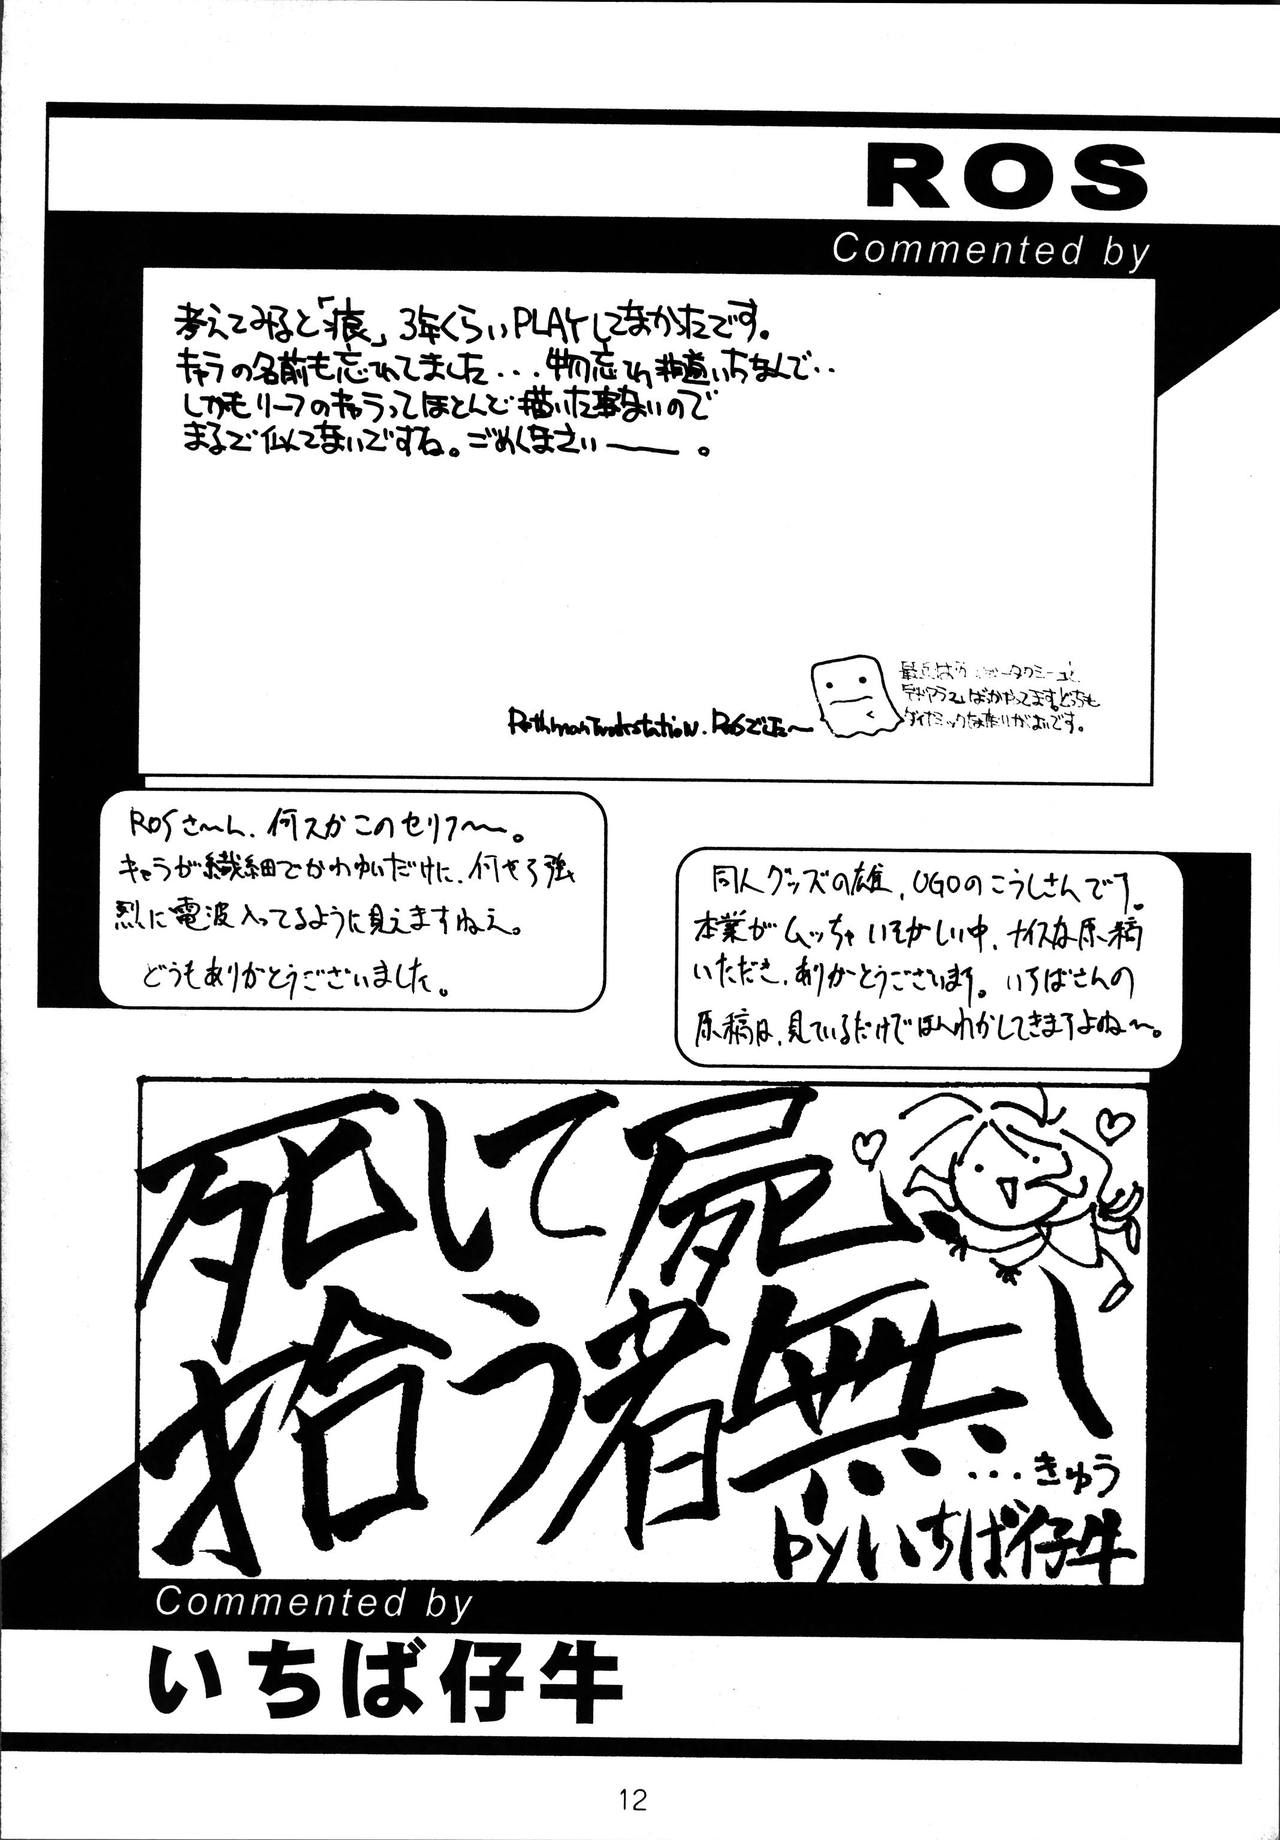 ROS
Commented by
考えてみると「痕」、3年くらいPLAYしてなかったです。
キャラの名前も忘れてました・・・物忘れ道いちなんで・・
しかもリーフのキャラってほとんど描いた事ないので
まるで似てないですね。ごめんなさいーー。
最近は
ばかやってます。どっちも
ダイナミックな所がよいです。
ROSでした〜
ROSさ〜ん、何スかこのセリフ〜〜。
キャラが繊細でかわゆいだけに、何やら強
烈に電波入ってるように見えますねえ。
どうもありがとうございました。
同人グッズの雄、UGOのこうしさんです。
本業がムッチャいそがしい中、ナイスな原稿
いただき、ありがとうございます。いちばさんの
原稿は、見ているだけでほんわかしてきますよね〜。
死して屍
拾う者無し
...きゅう
byいちば仔牛
Commented by
いちば仔牛
12